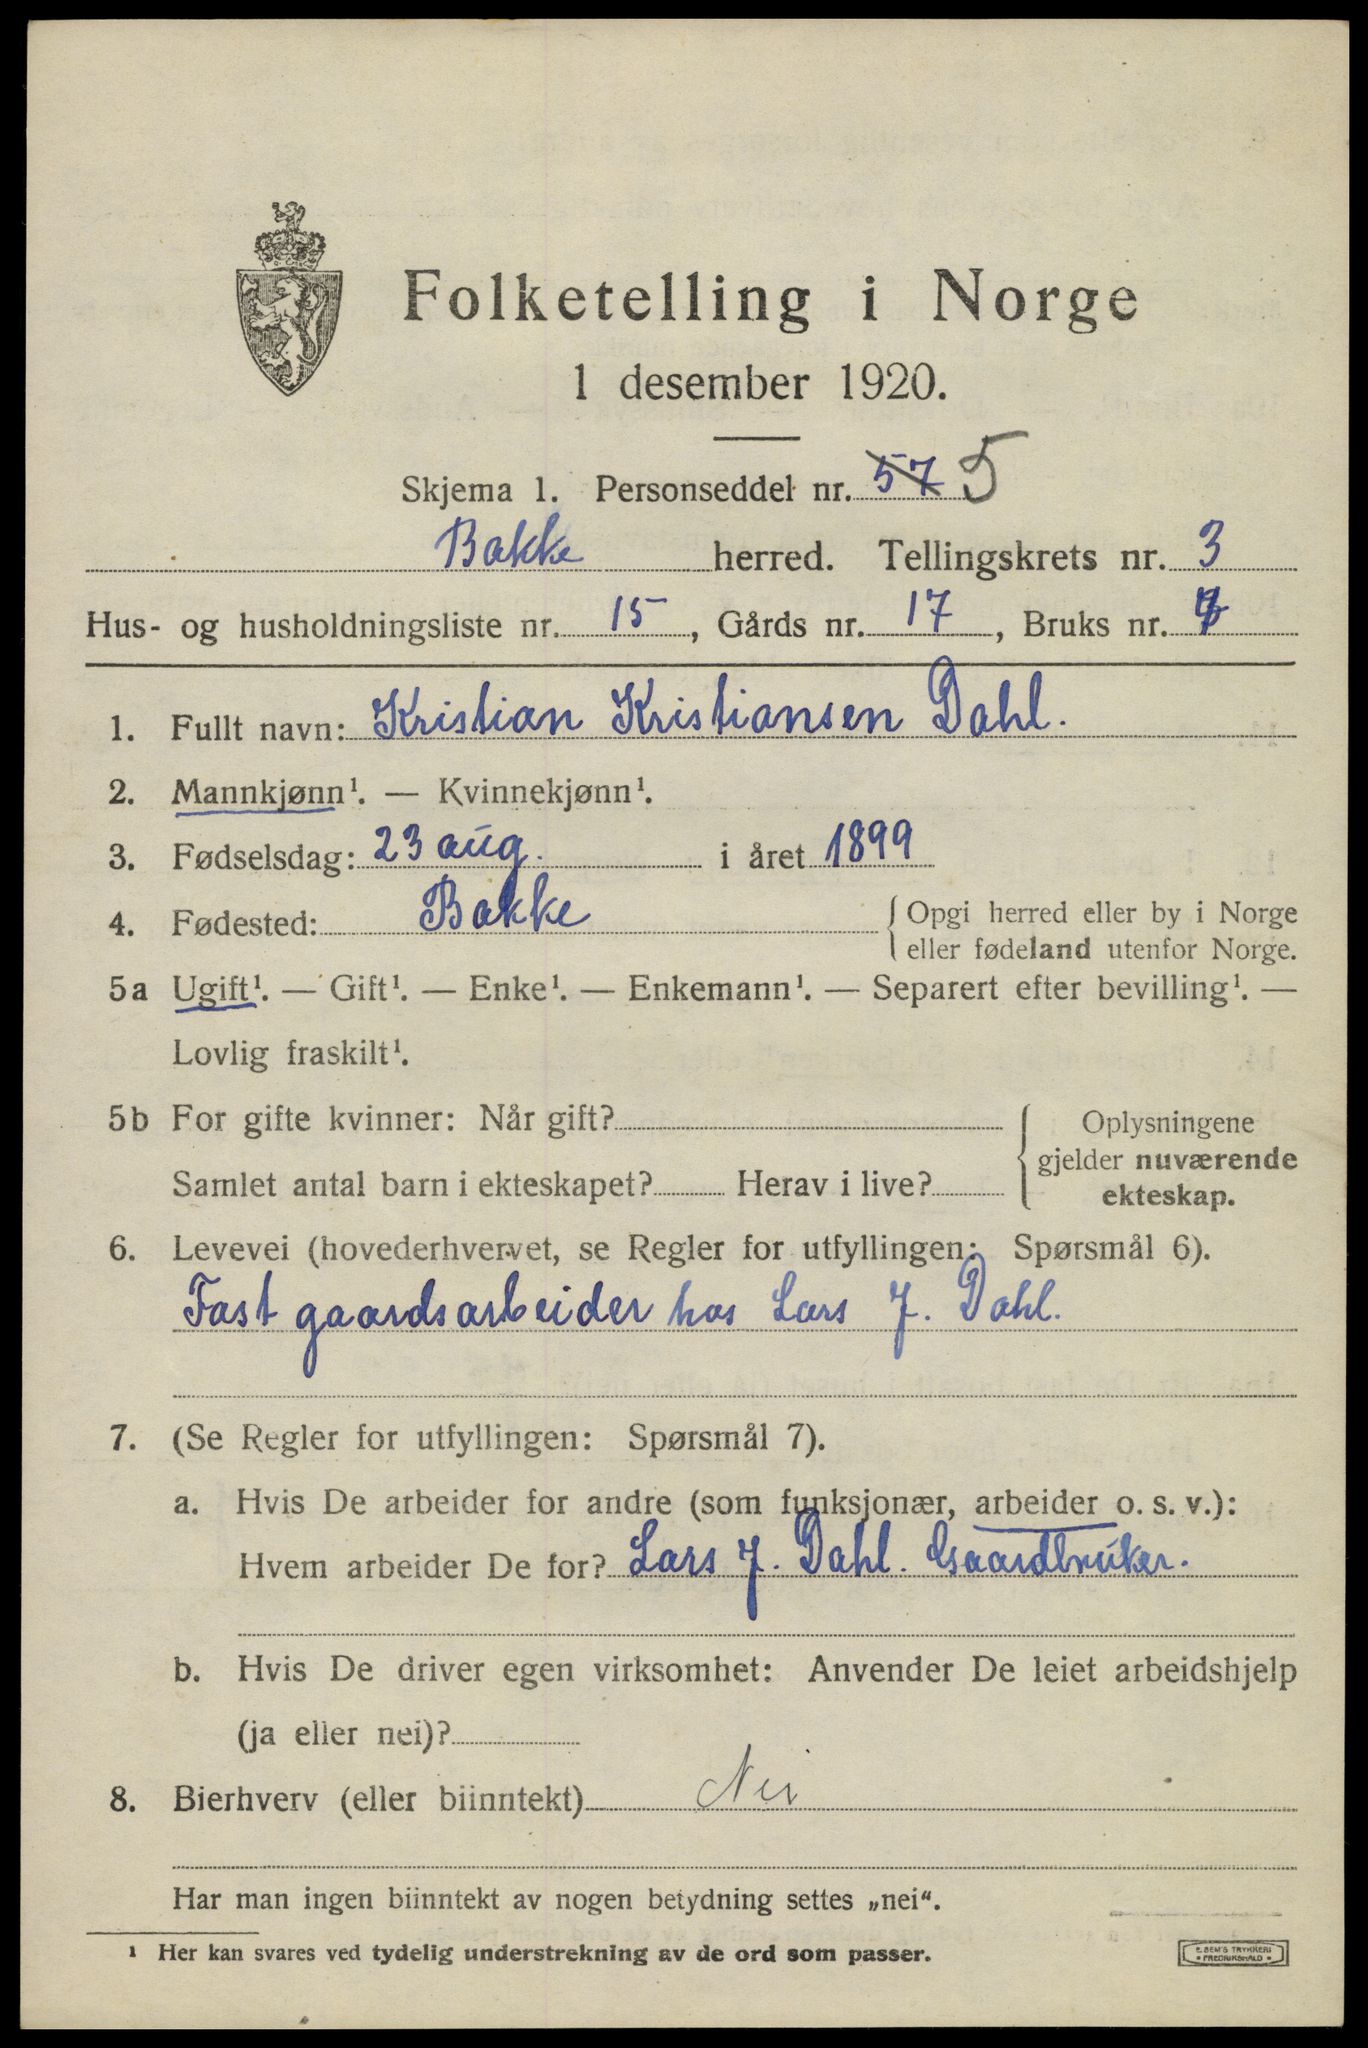 Folketelling i Norge
1 desember 1920.
Skjema 1. Personseddel nr. 57 5
Bakke herred. Tellingskrets nr. 3
Hus- og husholdningsliste nr. 15, Gårds nr. 17, Bruks nr.
1. Fullt navn: Kristian Kristiansen Dahl.
2. Mannkjønn¹. — Kvinnekjønn¹.
3. Fødselsdag: 23 aug. i året 1899
4. Fødested: Bakke { Opgi herred eller by i Norge
eller fødeland utenfor Norge.
5a Ugift¹. — Gift¹. — Enke¹. — Enkemann¹. — Separert efter bevilling¹. —
Lovlig fraskilt¹.
5b For gifte kvinner: Når gift? { Oplysningene
gjelder nuværende
Samlet antal barn i ekteskapet? Herav i live? ekteskap.
6. Levevei (hovederhvervet, se Regler for utfyllingen: Spørsmål 6).
Fast gaardsarbeider hos Lars J. Dahl.
7. (Se Regler for utfyllingen: Spørsmål 7).
a. Hvis De arbeider for andre (som funksjonær, arbeider o. s. v.):
Hvem arbeider De for? Lars J. Dahl. Gaardbruker.
b. Hvis De driver egen virksomhet: Anvender De leiet arbeidshjelp
(ja eller nei)?
8. Bierhverv (eller biinntekt) Nei
Har man ingen biinntekt av nogen betydning settes „nei“.
¹ Her kan svares ved tydelig understrekning av de ord som passer.
E. SEM'S TRYKKERI
FREDRIKSHALD